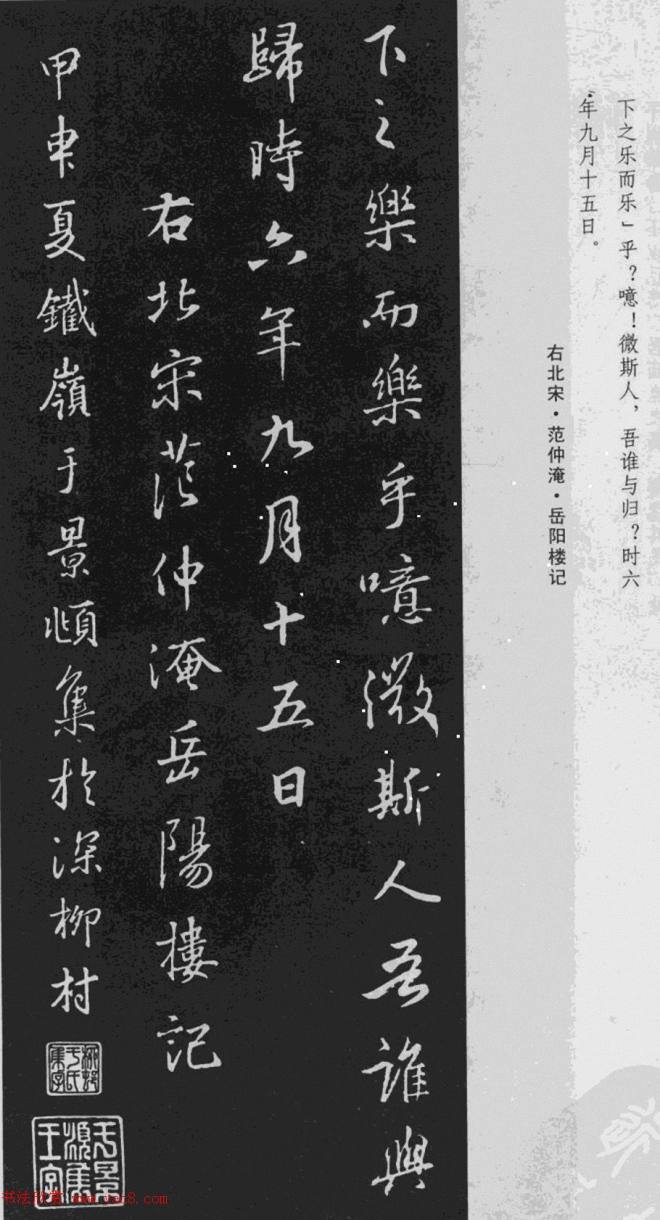 下之乐而乐」乎？噫！微斯人，吾谁与归？时六
年九月十五日。
右北宋·范仲淹·岳阳楼记
下之樂而樂乎噫微斯人吾誰與
歸時六年九月十五日
右北宋范仲淹岳陽樓記
甲申夏鐵嶺于景頫集於深柳村
书法欣赏 www.yac8.com